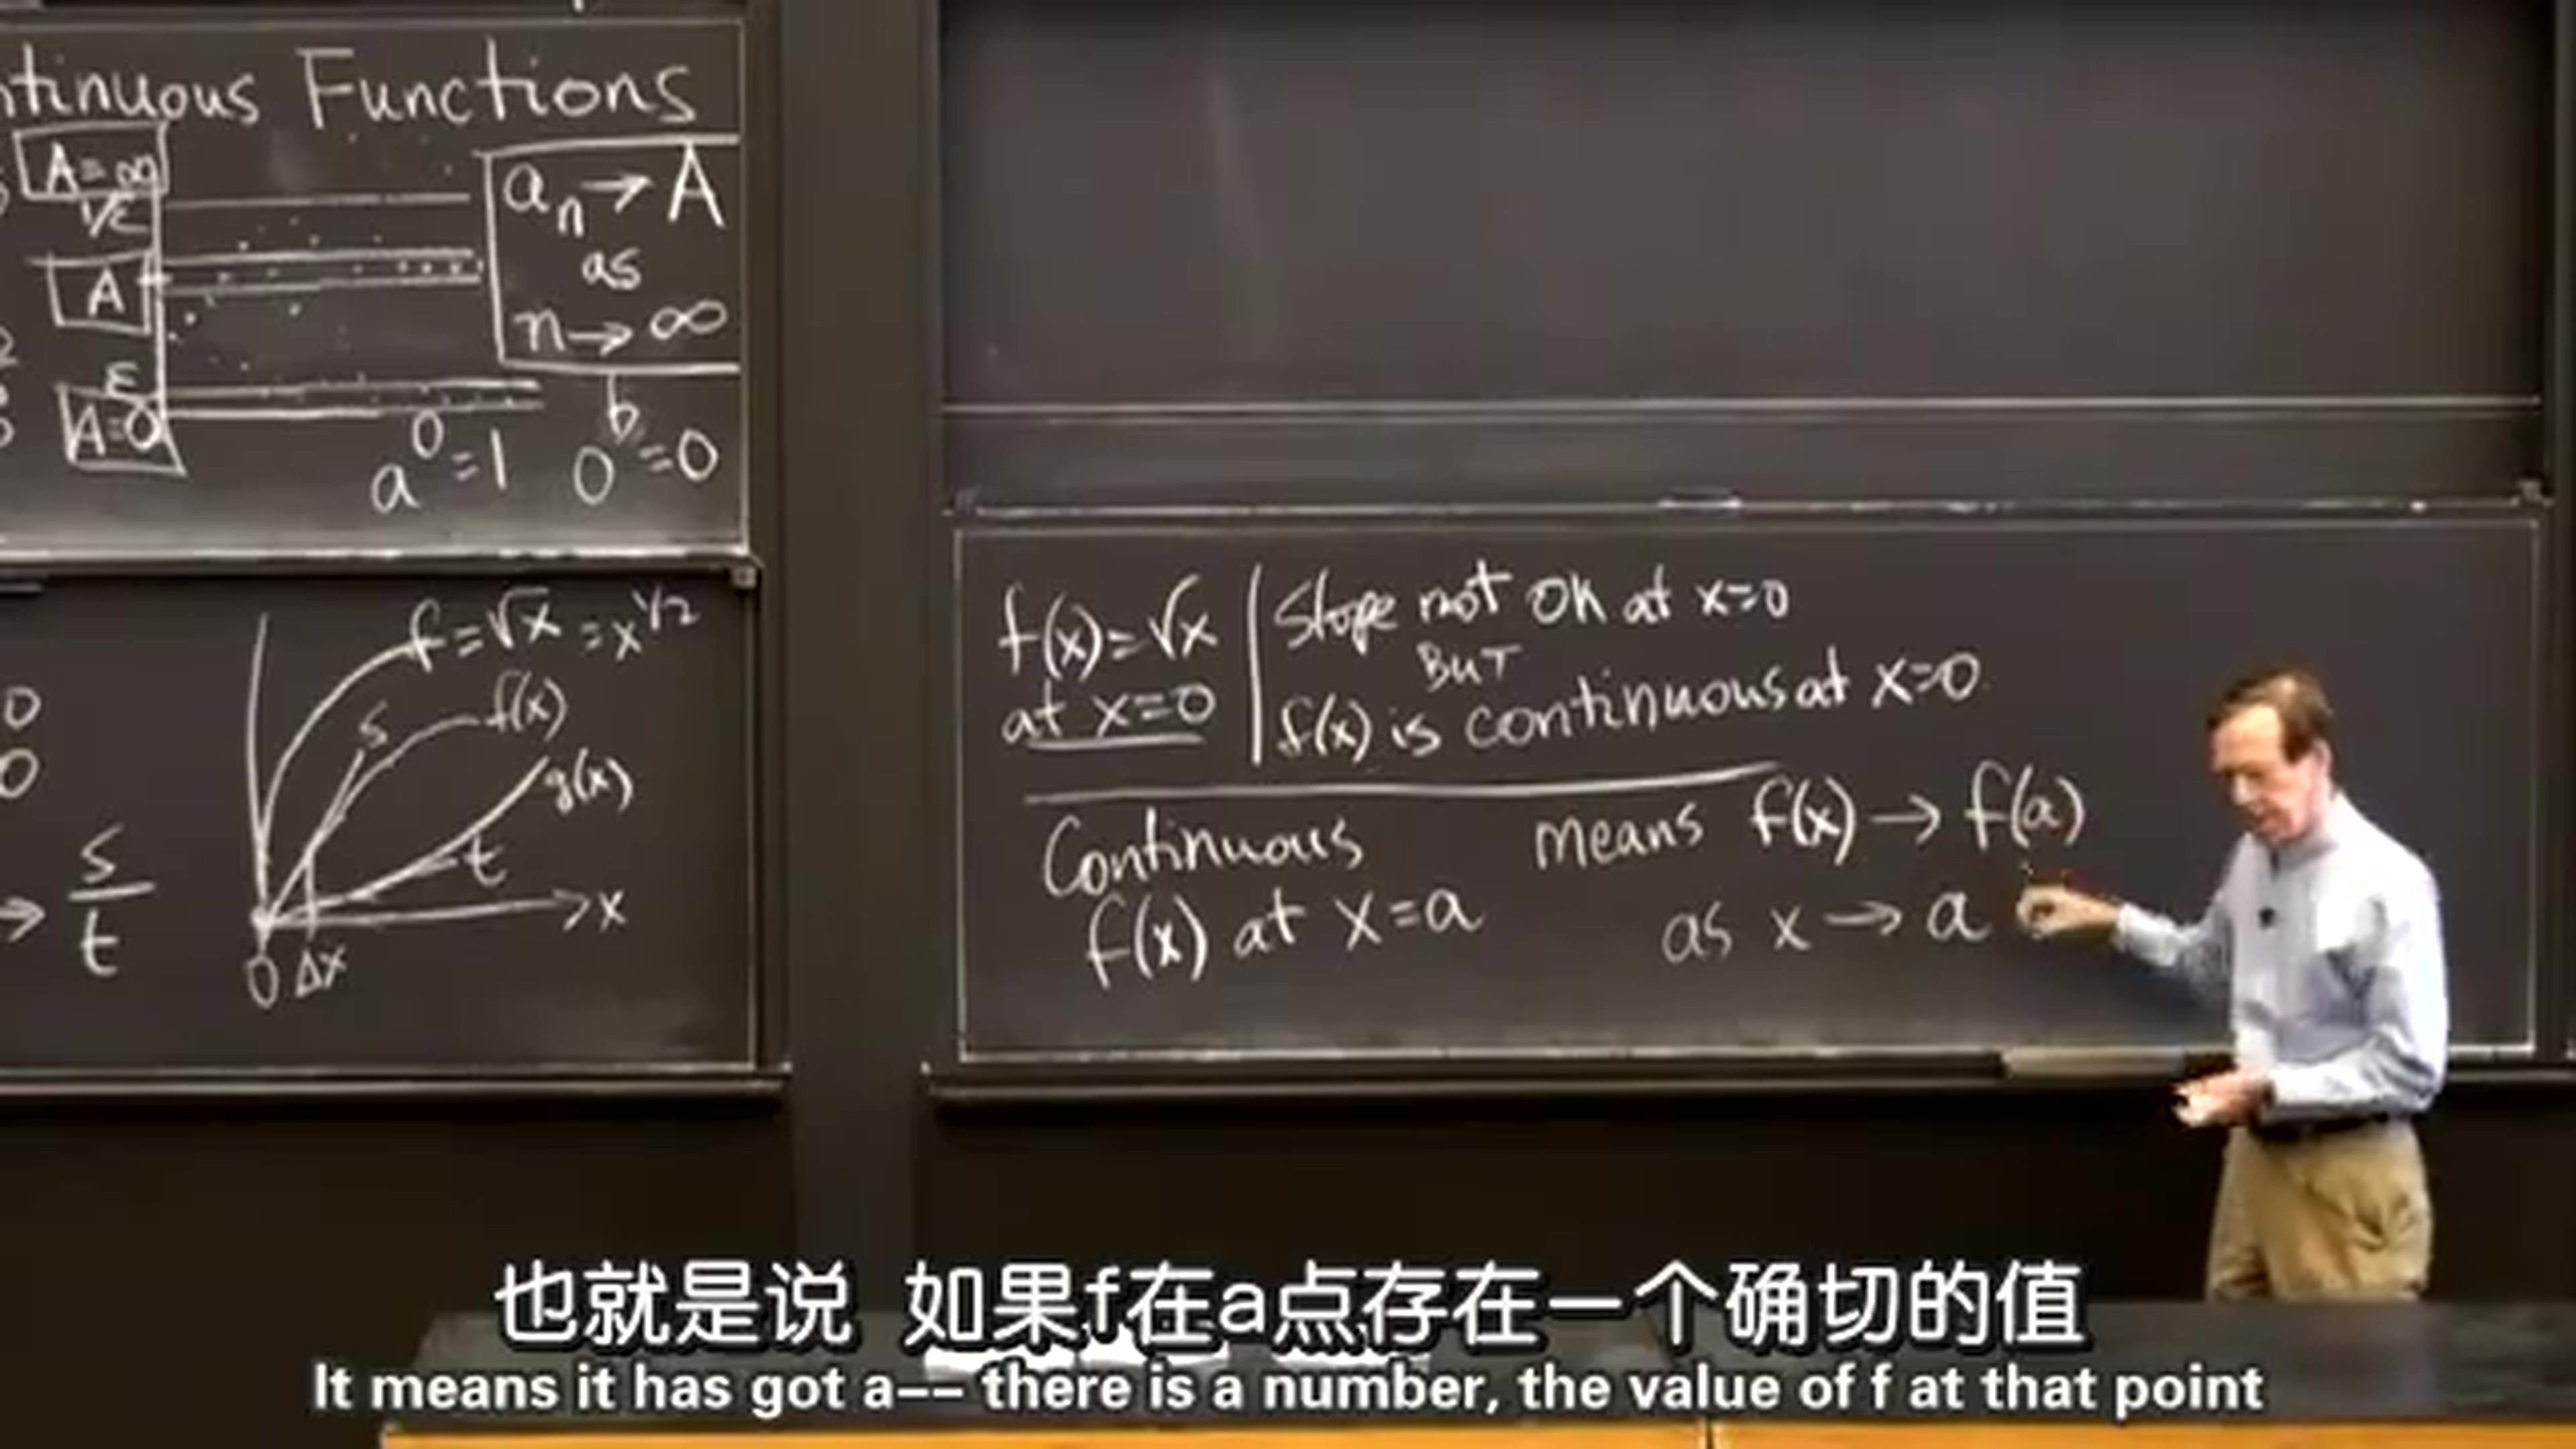 ntinuous Functions
A=∞
1/ε
A
ε
A=0
aₙ→A
as
n→∞
a⁰=1 0ᵇ=0
f=√x=x^1/2
s
f(x)
g(x)
t
x
0 Δx
0
0
→ s/t
f(x)=√x
at x=0
Slope not OK at x=0
BUT
f(x) is continuous at x=0
Continuous means f(x)→f(a)
f(x) at x=a as x→a
也就是说 如果f在a点存在一个确切的值
It means it has got a-- there is a number, the value of f at that point